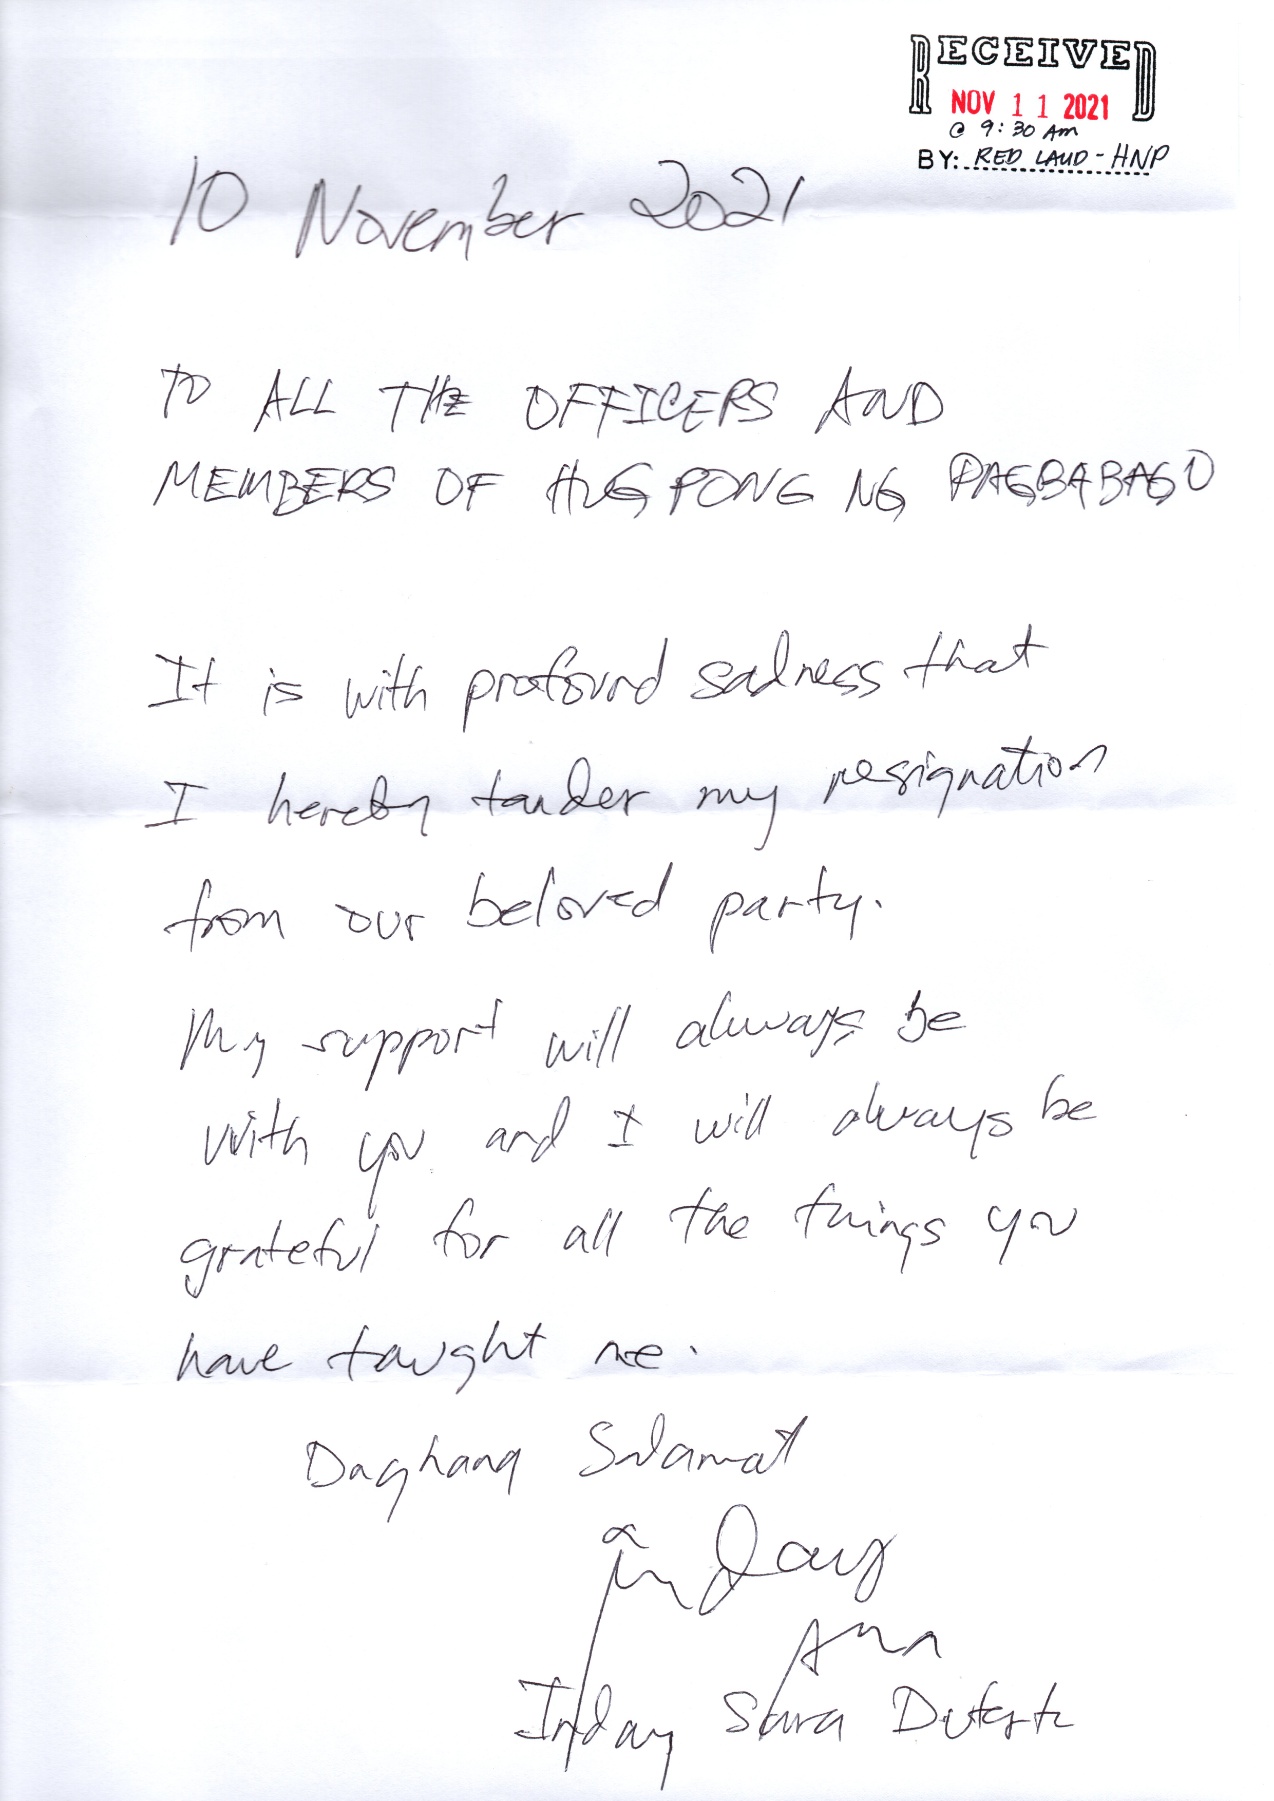 RECEIVED
NOV 11 2021
@ 9:30 AM
BY: RED LAUD - HNP
10 November 2021
TO ALL THE OFFICERS AND
MEMBERS OF HUGPONG NG PAGBABAGO
It is with profound sadness that
I hereby tender my resignation
from our beloved party.
My support will always be
with you and I will always be
grateful for all the things you
have taught me.
Daghang Salamat
Inday
Inday Sara Duterte